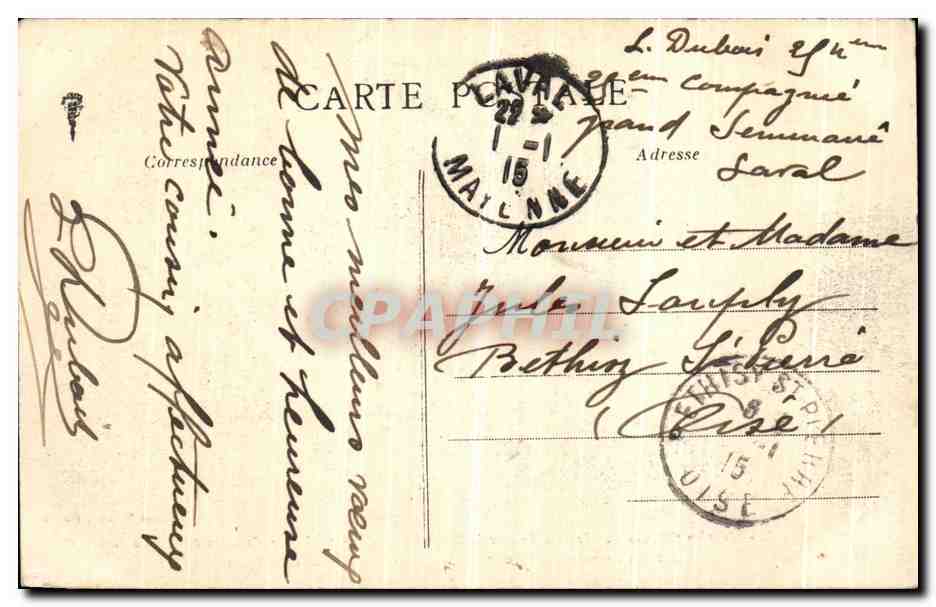 CARTE POSTALE
Correspondance
Adresse
L. Dubois 25 4eme
28eme Compagnie
grand Semmané
Laval
LAVAL
22
1 -1
15
MAYENNE
Monsieur et Madame
Jules
Bethisy St Pierre
(Oise)
BETHISY-ST-PIERRE
8
-1
15
OISE
Mes meilleurs vœux
de bonne et heureuse
année.
Votre cousin affectueux
L Dubois
CPAPHIL